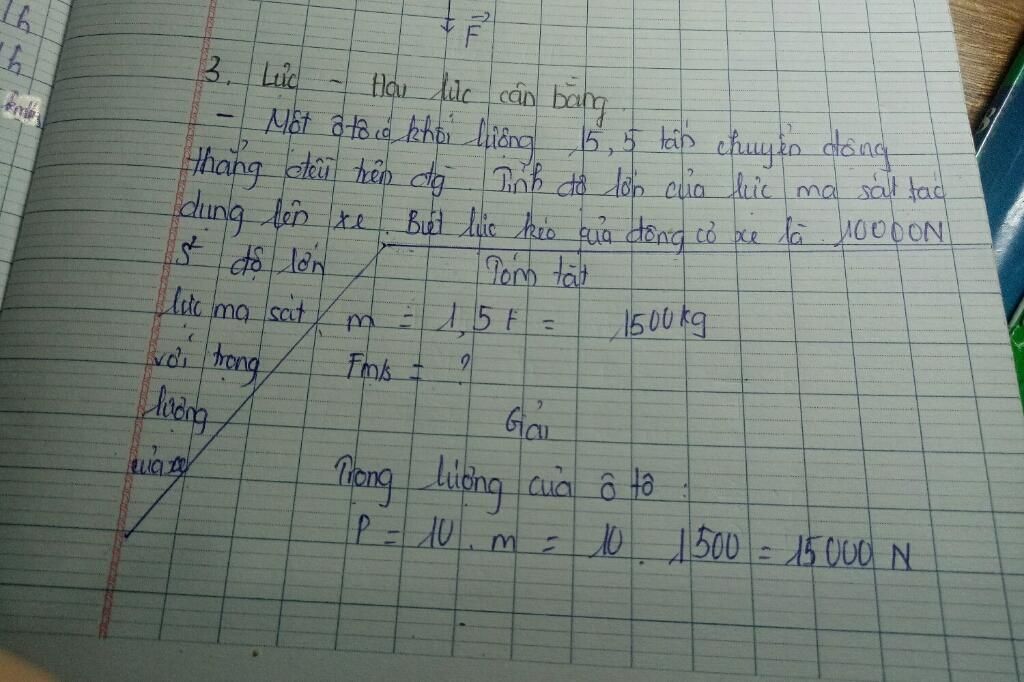 1h
h
F
3. Lực - Hai lực cân bằng
- Một ô tô có khối lượng 15,5 tấn chuyển động
thẳng đều trên đg. Tính độ lớn của lực ma sát tác
dụng lên xe. Biết lực kéo của động cơ xe là 10000N
S² độ lớn
lực ma sát
với trọng
lượng
của xe
Tóm tắt
m = 1,5t = 1500kg
Fms = ?
Giải
Trọng lượng của ô tô:
P = 10.m = 10.1500 = 15000 N